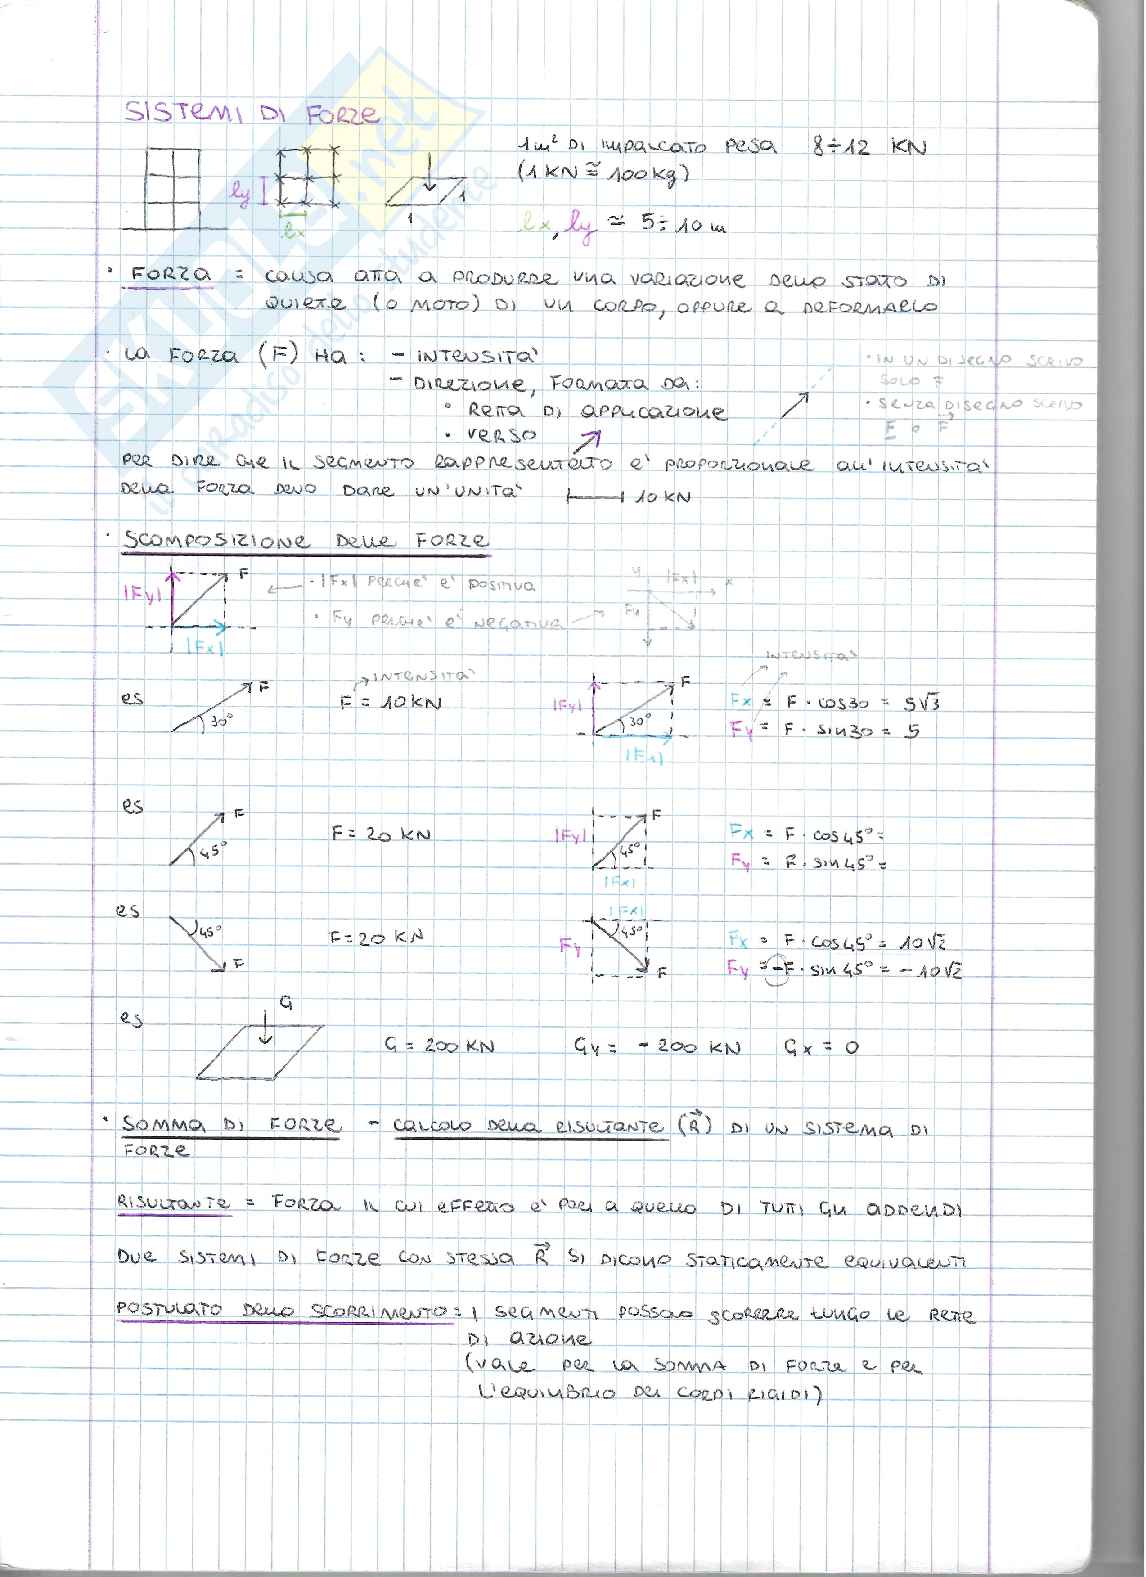 SISTEMI DI FORZE
1 m² DI IMPALCATO PESA 8÷12 KN
(1 KN ≅ 100 kg)
ly
lx
1
1
lx, ly ≅ 5÷10 m
• FORZA = CAUSA ATTA A PRODURRE UNA VARIAZIONE DELLO STATO DI
QUIETE (O MOTO) DI UN CORPO, OPPURE A DEFORMARLO
• LA FORZA (F) HA: - INTENSITA'
- DIREZIONE, FORMATA DA:
• RETTA DI APPLICAZIONE
• VERSO
• IN UN DISEGNO SCRIVO
SOLO F
• SENZA DISEGNO SCRIVO
F O F
PER DIRE CHE IL SEGMENTO RAPPRESENTATO E' PROPORZIONALE ALL'INTENSITA'
DELLA FORZA DEVO DARE UN'UNITA' 10 KN
• SCOMPOSIZIONE DELLE FORZE
|Fy| F
|Fx|
• |Fx| PERCHE' E' POSITIVA
• Fy PERCHE' E' NEGATIVA
y |Fx| x
Fy
es F 30°
INTENSITA'
F = 10 KN
|Fy| F 30°
|Fx|
INTENSITA'
Fx = F · cos30 = 5√3
Fy = F · sin30 = 5
es F 45°
F = 20 KN
|Fy| F 45°
|Fx|
Fx = F · cos45° =
Fy = F · sin45° =
es 45° F
F = 20 KN
|Fx|
Fy 45° F
Fx = F · cos45° = 10√2
Fy = -F · sin45° = -10√2
es G
G = 200 KN Gy = -200 KN Gx = 0
• SOMMA DI FORZE - CALCOLO DELLA RISULTANTE (R⃗) DI UN SISTEMA DI
FORZE
RISULTANTE = FORZA IL CUI EFFETTO E' PARI A QUELLO DI TUTTI GLI ADDENDI
DUE SISTEMI DI FORZE CON STESSA R⃗ SI DICONO STATICAMENTE EQUIVALENTI
POSTULATO DELLO SCORRIMENTO = I SEGMENTI POSSONO SCORRERE LUNGO LE RETTE
DI AZIONE
(VALE PER LA SOMMA DI FORZE E PER
L'EQUILIBRIO DEI CORPI RIGIDI)